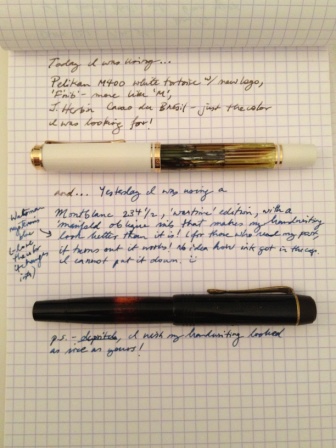 Today I was using...
Pelikan M400 white tortoise w/ new logo,
'F' nib - more like 'M',
J. Herbin Cacao du Bresil - just the color
I was looking for!
and... Yesterday I was using a
Montblanc 234 1/2, 'wartime' edition, with a
manifold oblique nib that makes my handwriting
look better than it is! (for those who read my post,
it turns out it works! No idea how ink got in the cap.
I cannot put it down. :)
Waterman
mysterious
blue
(
thanks
inks)
p.s. - I wish my handwriting looked
as nice as yours!